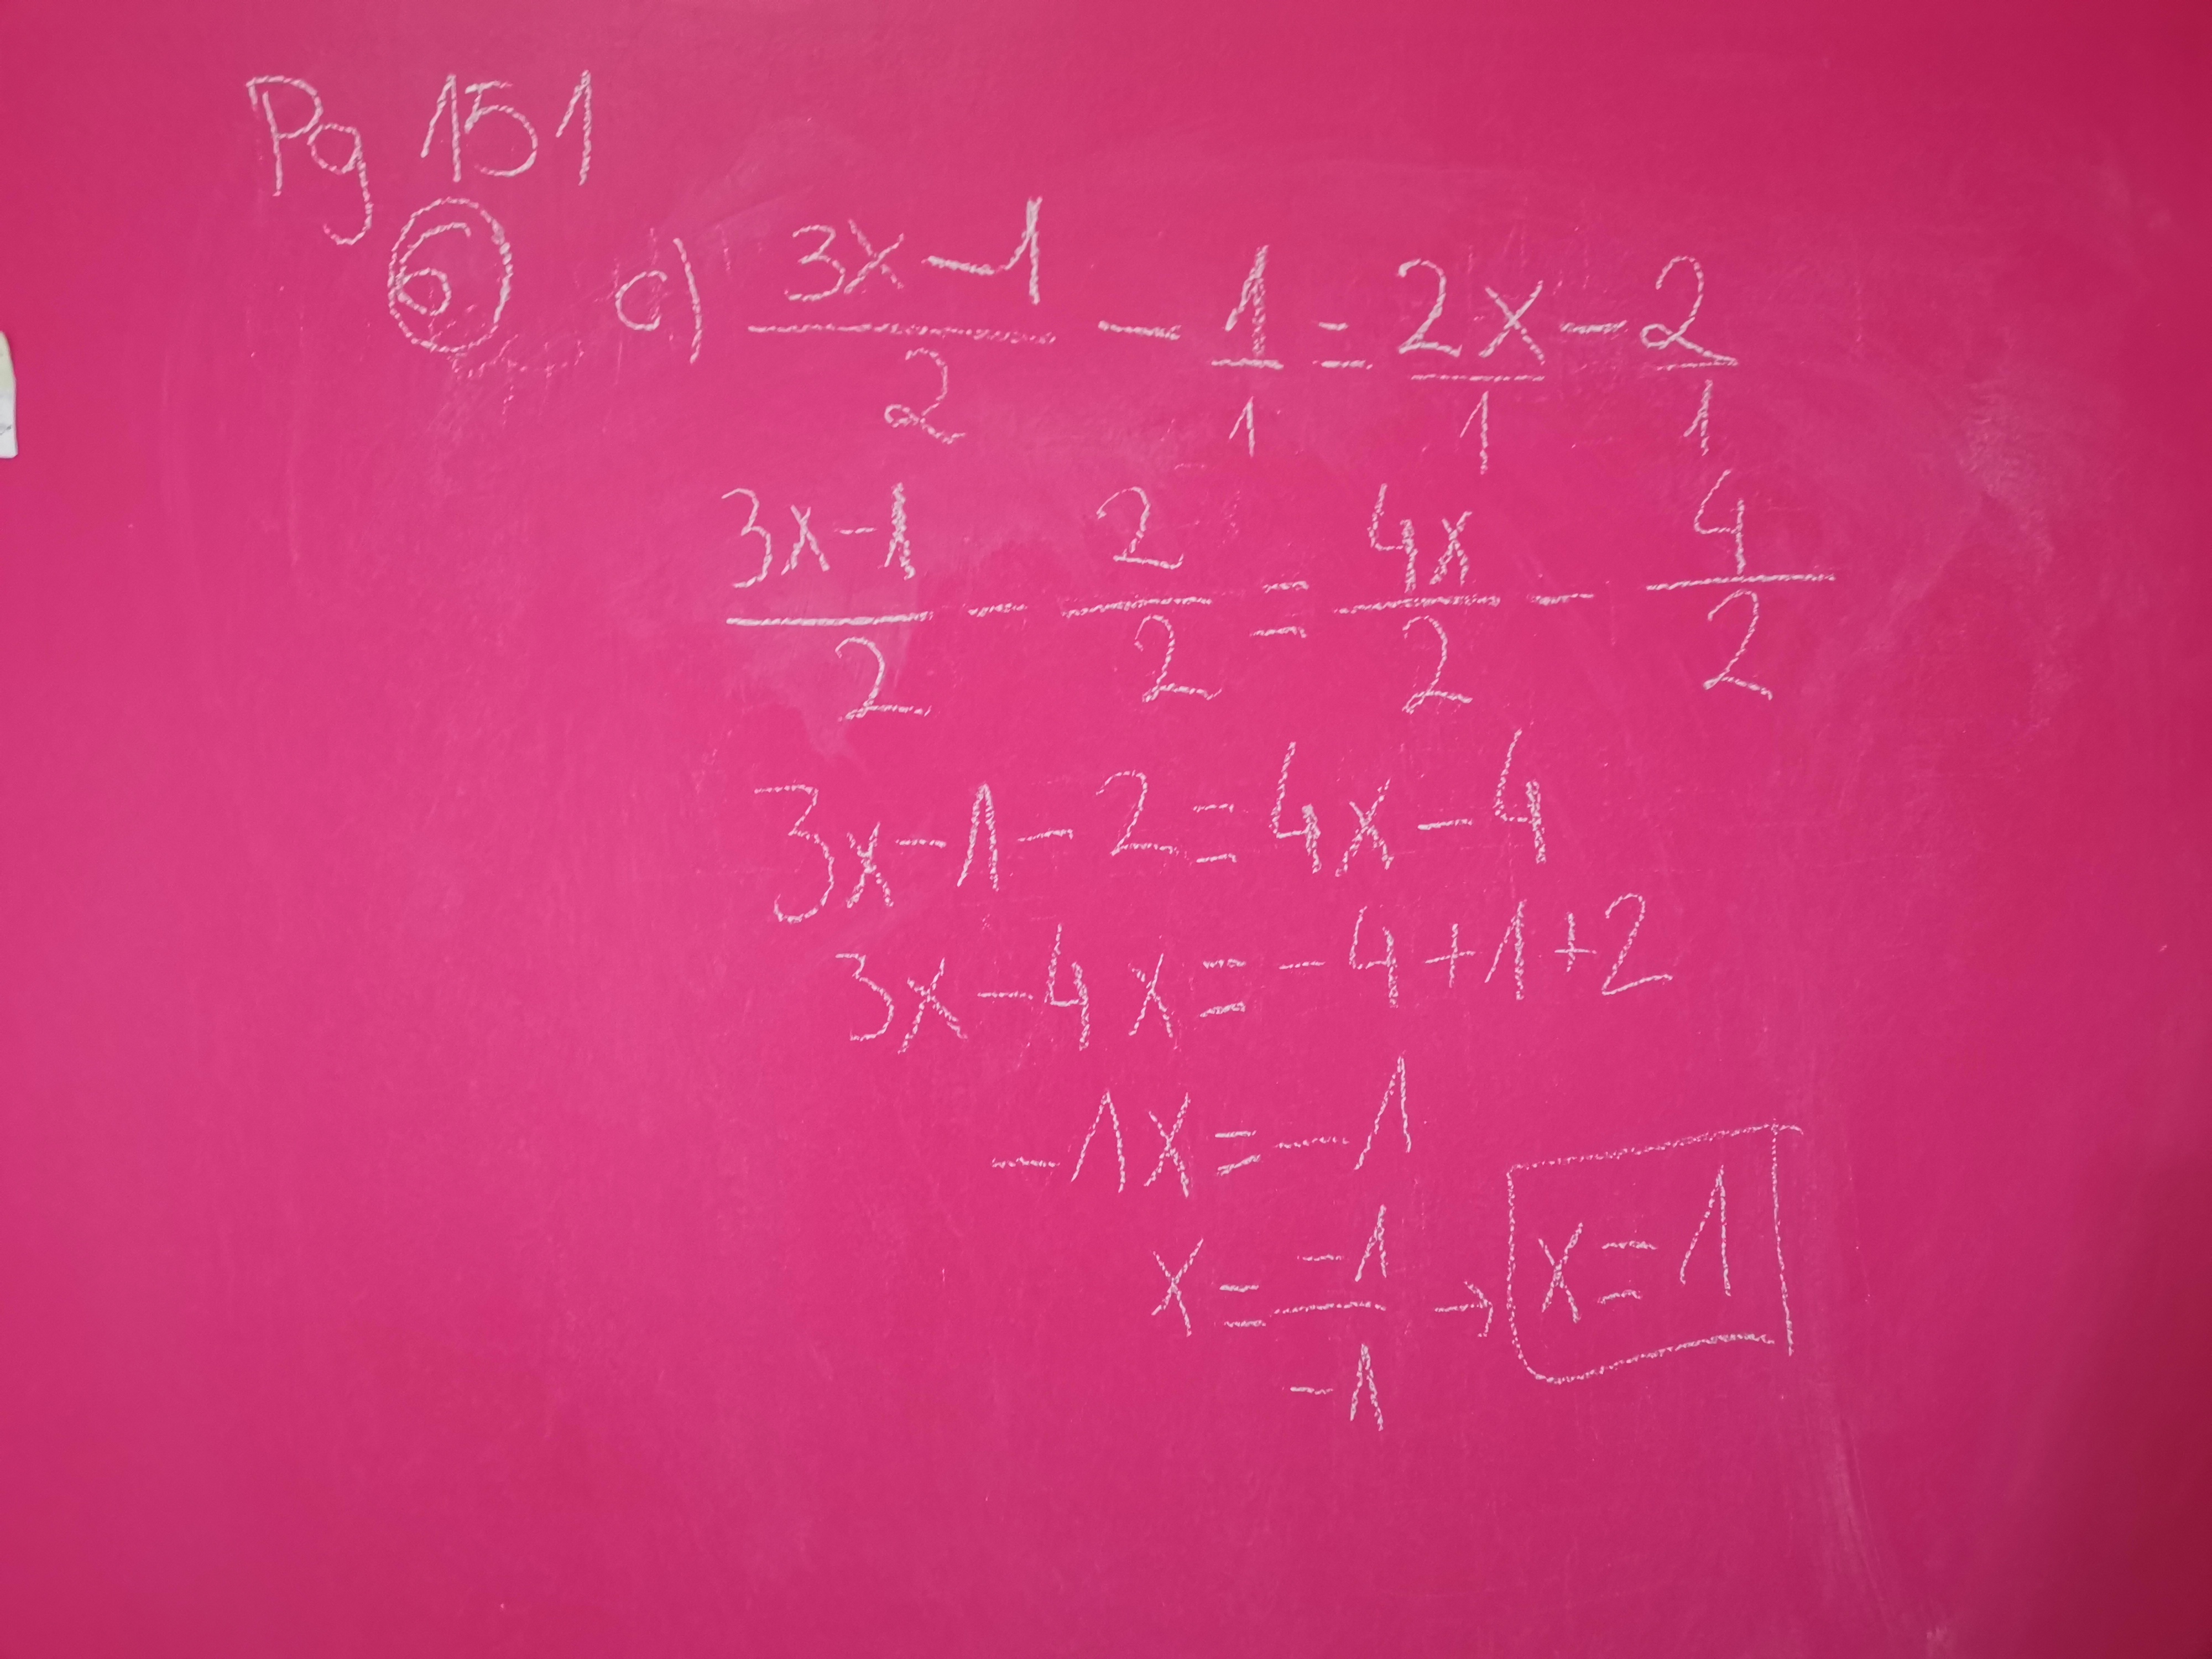 Pg 151
6 c) (3x-1)/2 - 1/1 = 2x/1 - 2/1
(3x-1)/2 - 2/2 = 4x/2 - 4/2
3x-1-2=4x-4
3x-4x=-4+1+2
-1x=-1
x=-1/-1 → x=1